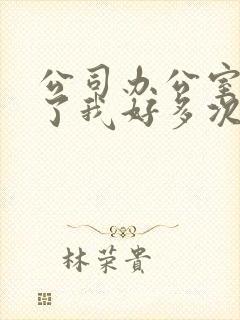 公司办公室
了我好多次
林荣貴